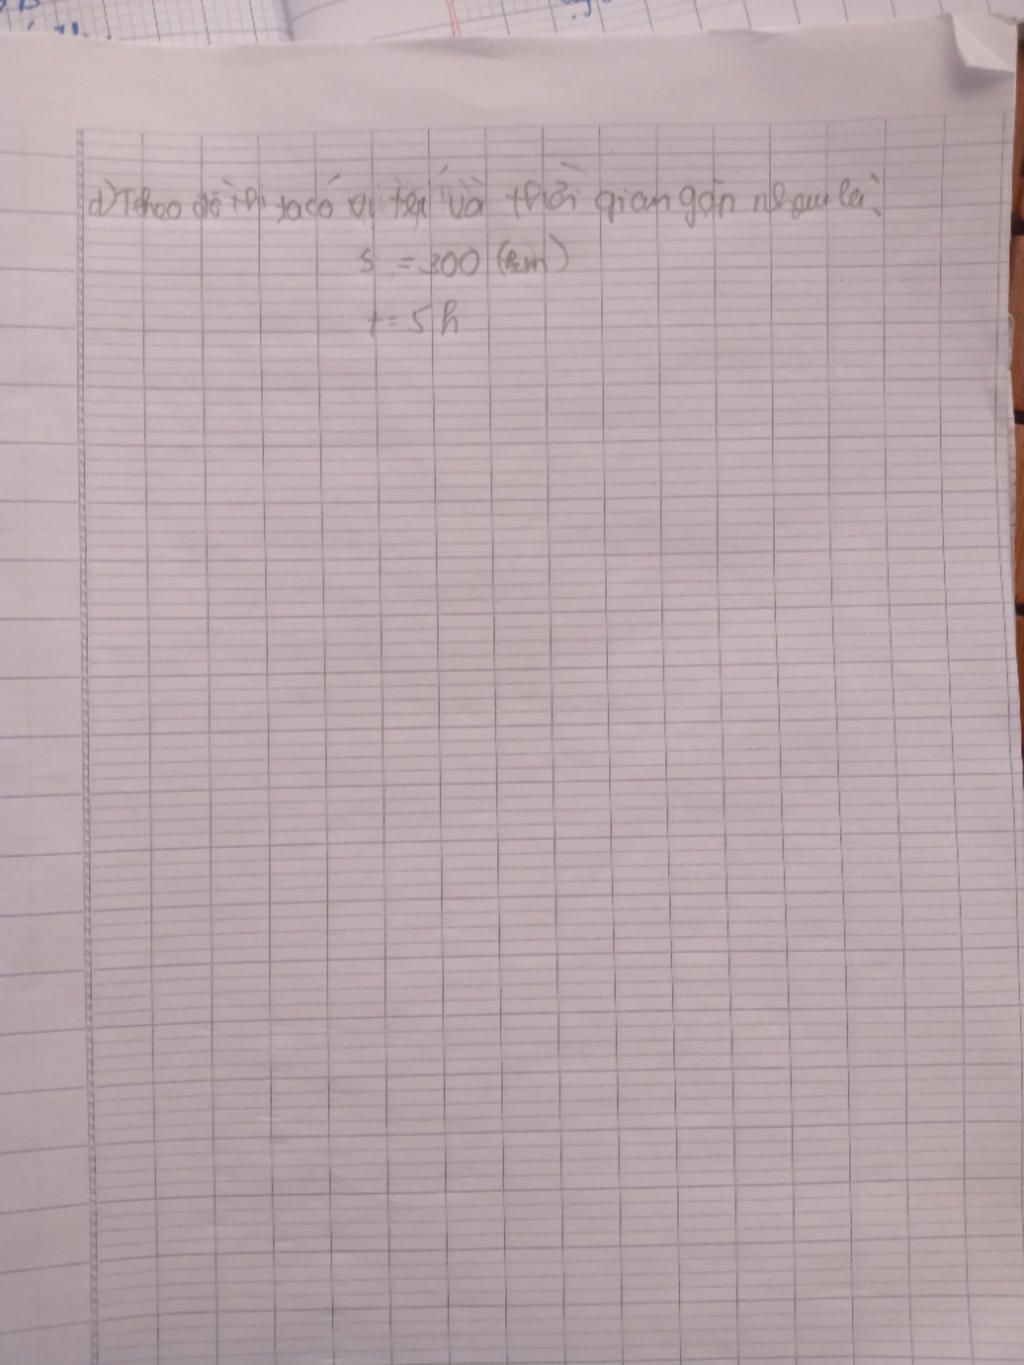 d) Theo đồ thị ta có vị trí và thời gian gặp nhau là:
S = 300 (km)
t = 5h